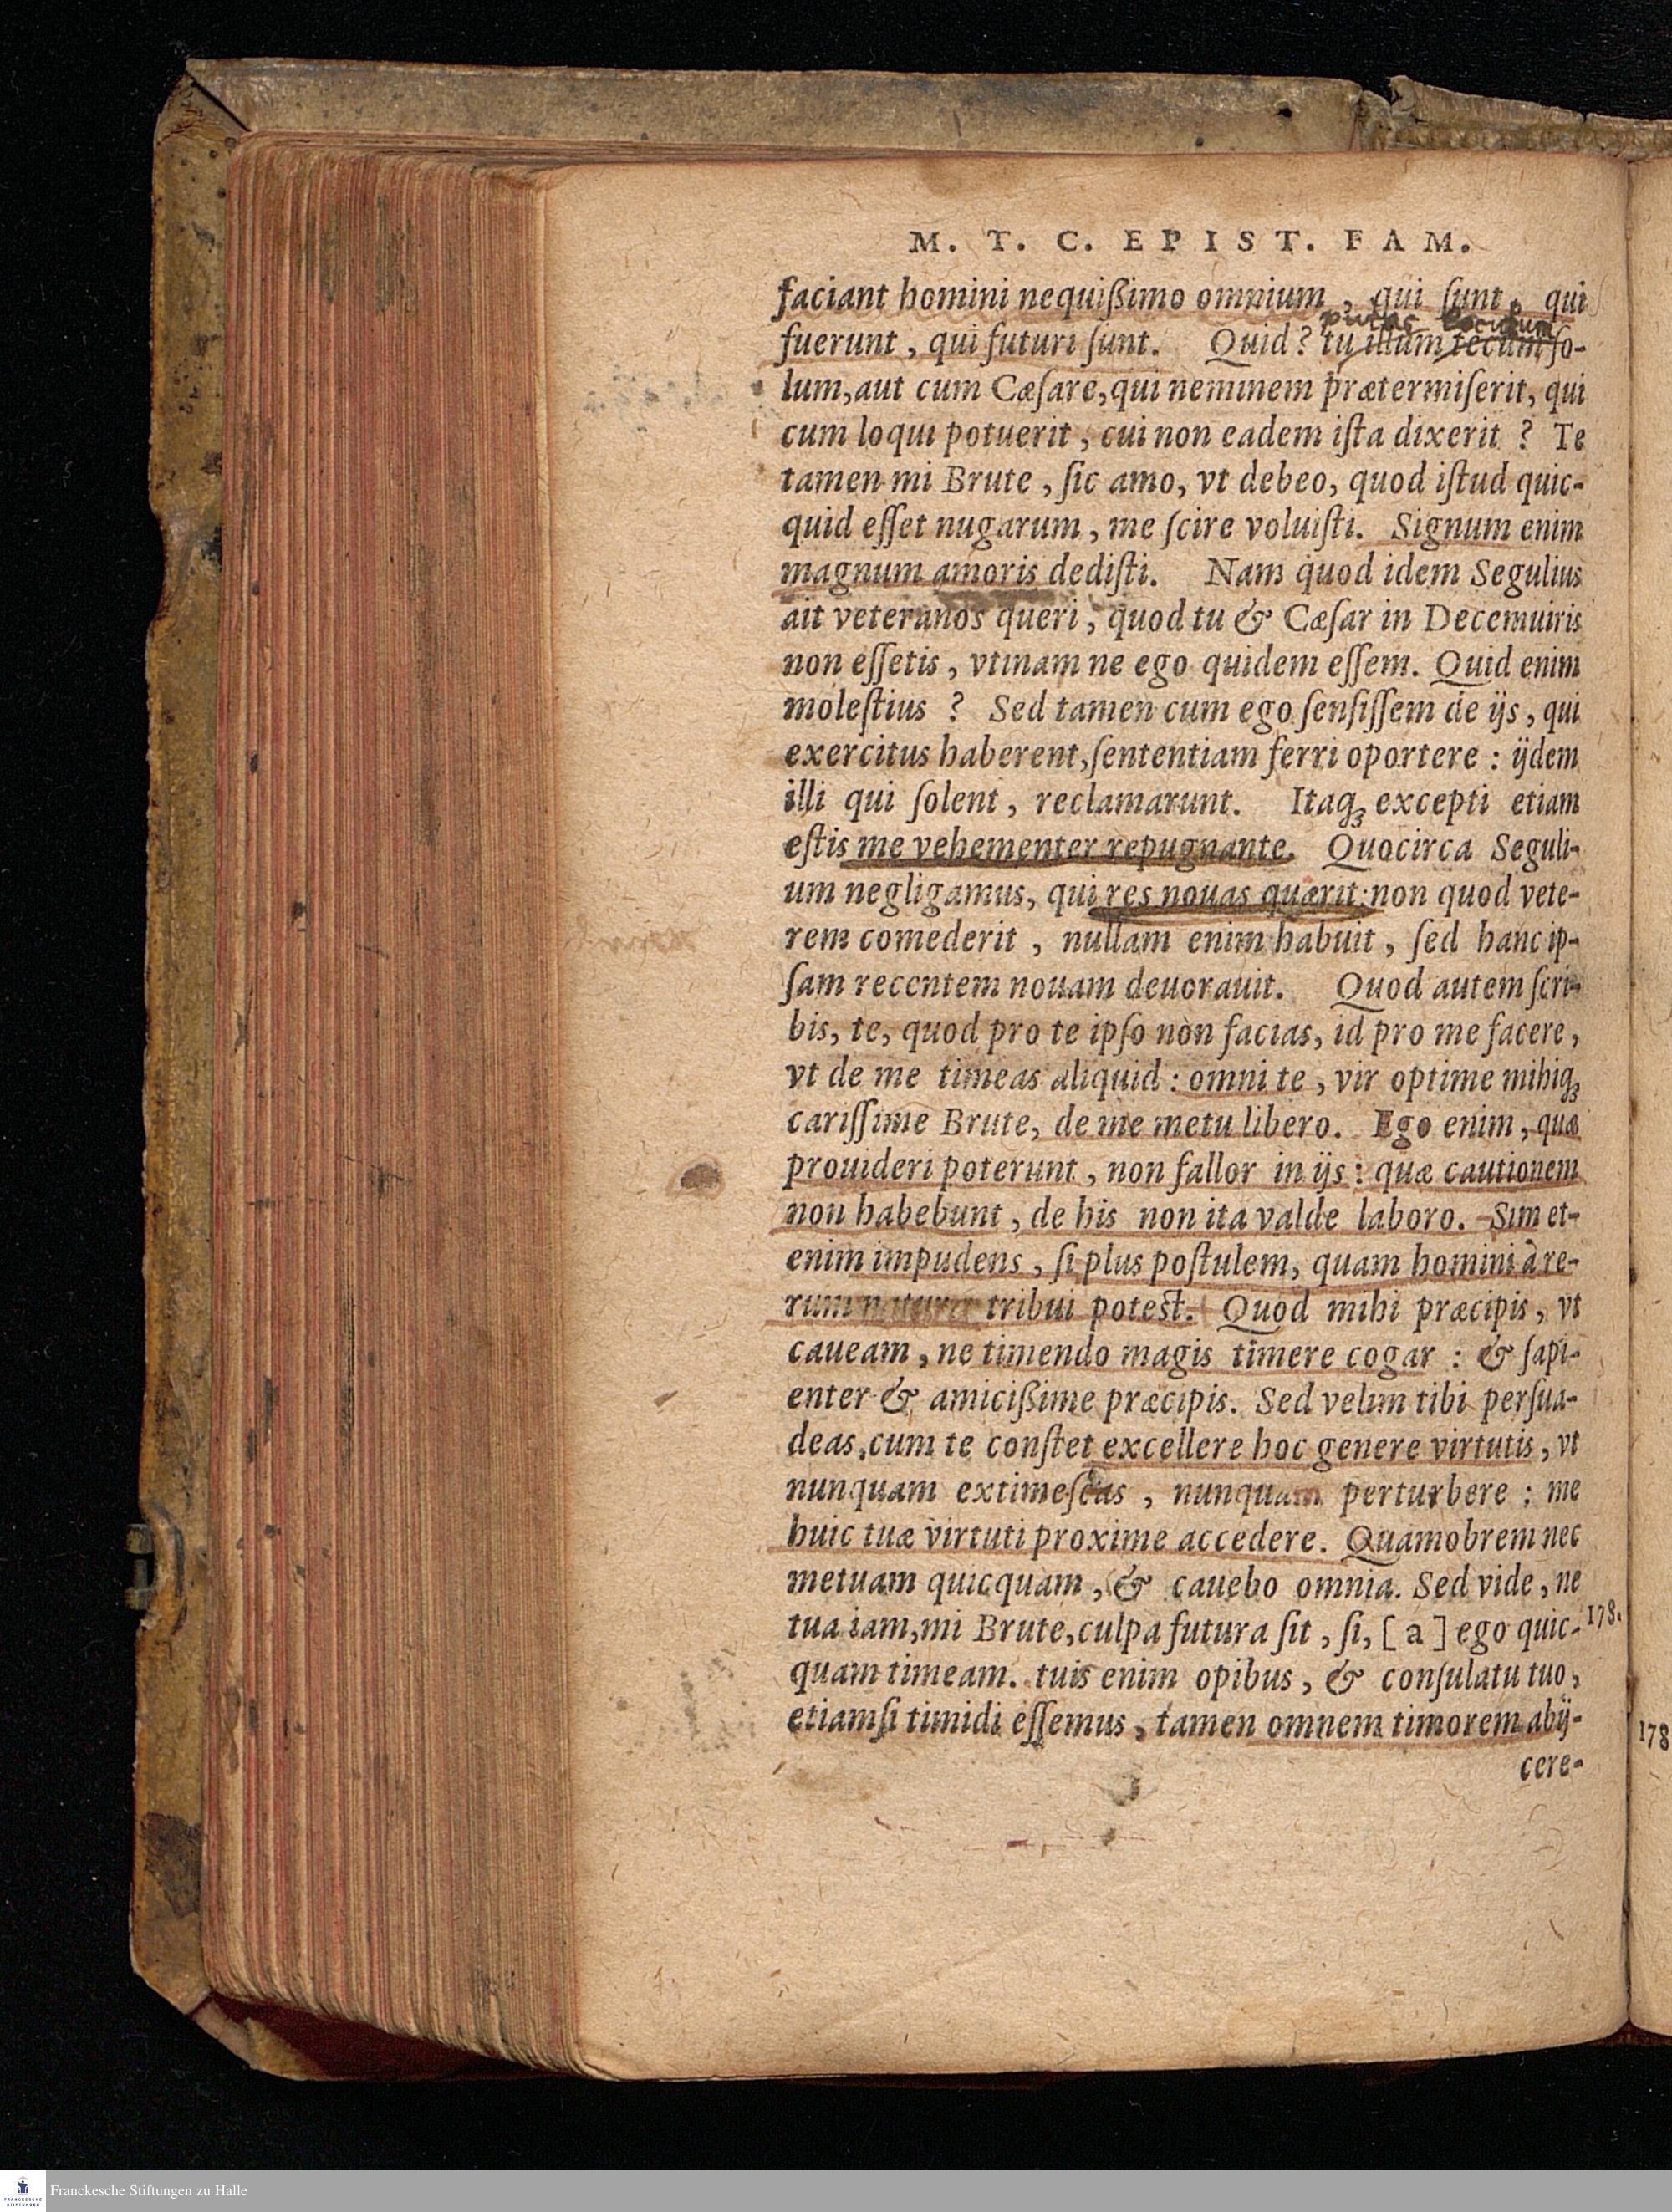 M. T. C. EPIST. FAM.
faciant homini nequißimo omnium, qui ſunt, qui
fuerunt, qui futuri ſunt. Quid? tu illum tecum ſo-
lum, aut cum Cæſare, qui neminem prætermiſerit, qui
cum loqui potuerit, cui non eadem iſta dixerit? Te
tamen mi Brute, ſic amo, vt debeo, quod iſtud quic-
quid eſſet nugarum, me ſcire voluiſti. Signum enim
magnum amoris dediſti. Nam quod idem Segulius
ait veteranos queri, quod tu & Cæſar in Decemuiris
non eſſetis, vtinam ne ego quidem eſſem. Quid enim
moleſtius? Sed tamen cum ego ſenſiſſem de ijs, qui
exercitus haberent, ſententiam ferri oportere: ijdem
illi qui ſolent, reclamarunt. Itaqꝫ excepti etiam
eſtis me vehementer repugnante. Quocirca Seguli-
um negligamus, qui res nouas quærit: non quod vete-
rem comederit, nullam enim habuit, ſed hanc ip-
ſam recentem nouam deuorauit. Quod autem ſcri-
bis, te, quod pro te ipſo nòn facias, id pro me facere,
vt de me timeas aliquid: omni te, vir optime mihiqꝫ
cariſſime Brute, de me metu libero. Ego enim, quæ
prouideri poterunt, non fallor in ijs: quæ cautionem
non habebunt, de his non ita valde laboro. Sim et-
enim impudens, ſi plus poſtulem, quam homini à re-
rum natura tribui potest. Quod mihi præcipis, vt
caueam, ne timendo magis timere cogar: & ſapi-
enter & amicißime præcipis. Sed velim tibi perſua-
deas, cum te conſtet excellere hoc genere virtutis, vt
nunquam extimeſcas, nunquam perturbere: me
huic tuæ virtuti proxime accedere. Quamobrem nec
metuam quicquam, & cauebo omnia. Sed vide, ne
tua iam, mi Brute, culpa futura ſit, ſi, [a] ego quic- 178.
quam timeam. tuis enim opibus, & conſulatu tuo,
etiamſi timidi eſſemus, tamen omnem timorem abij-
cere-
178
Franckesche Stiftungen zu Halle